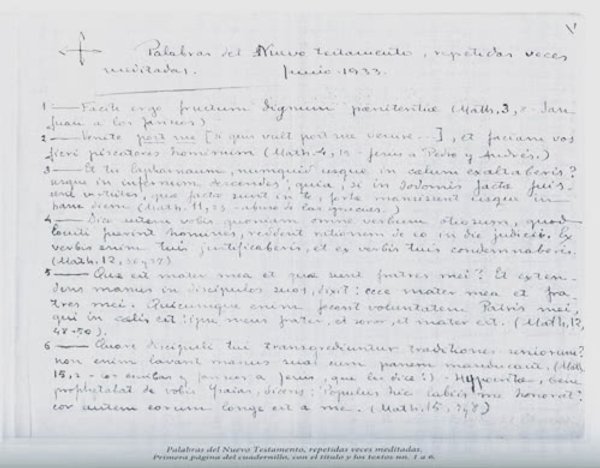 Palabras del Nuevo testamento, repetidas veces
meditadas. Junio-1933.
1 — Facite ergo fructum dignum pœnitentiæ (Math, 3, 8 - San
Juan a los fariseos)
2 — Venite post me [si quis vult post me venire...], et faciam vos
fieri piscatores hominum (Math. 4, 19 - Jesús a Pedro y Andrés.)
3 — Et tu Capharnaum, numquid usque in cœlum exaltaberis?
usque in infernum descendes; quia, si in Sodomis factæ fuis-
sent virtutes, quæ factæ sunt in te, forte mansissent usque in
hanc diem (Math. 11, 23 - abuso de las gracias.)
4 — Dico autem vobis quoniam omne verbum otiosum, quod
locuti fuerint homines, reddent rationem de eo in die judicii. Ex
verbis enim tuis justificaberis, et ex verbis tuis condemnaberis.
(Math. 12, 36 y 37)
5 — Quæ est mater mea et qui sunt fratres mei? Et exten-
dens manus in discipulos suos, dixit: ecce mater mea et fra-
tres mei. Quicumque enim fecerit voluntatem Patris mei,
qui in cœlis est: ipse meus frater, et soror, et mater est. (Math, 12,
48-50).
6 — Quare discipuli tui transgrediuntur traditiones seniorum?
non enim lavant manus suas cum panem manducant. (Math
15, 2 - escribas y fariseos a Jesús, que les dice:) - Hypocritæ, bene
prophetabat de vobis Isaias, dicens: Populus hic labiis me honorat:
cor autem eorum longe est a me. (Math. 15, 7 y 8)
Palabras del Nuevo Testamento, repetidas veces meditadas.
Primera página del cuadernillo, con el título y los textos no. 1 a 6.